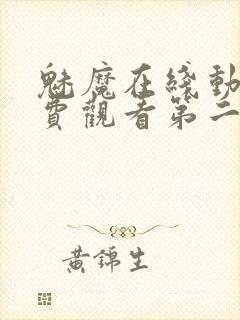 魅魔在綫動
費觀看第二
黃錦生